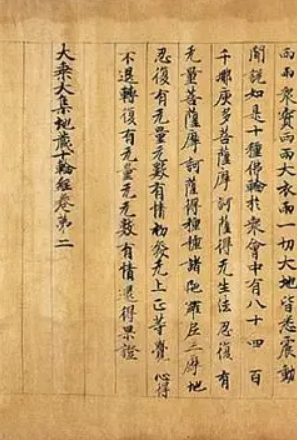 雨雨衆寶雨雨大衣雨一切大地皆悉震動
聞說如是十種佛輪於衆會中有八十四百
千那庾多菩薩摩訶薩得无生法忍復有
无量菩薩摩訶薩得種種諸陁羅尼三摩地
忍復有无量无數有情初發无上正等覺心得
不退轉復有无量无數有情還得果證
大乘大集地藏十輪經卷第二